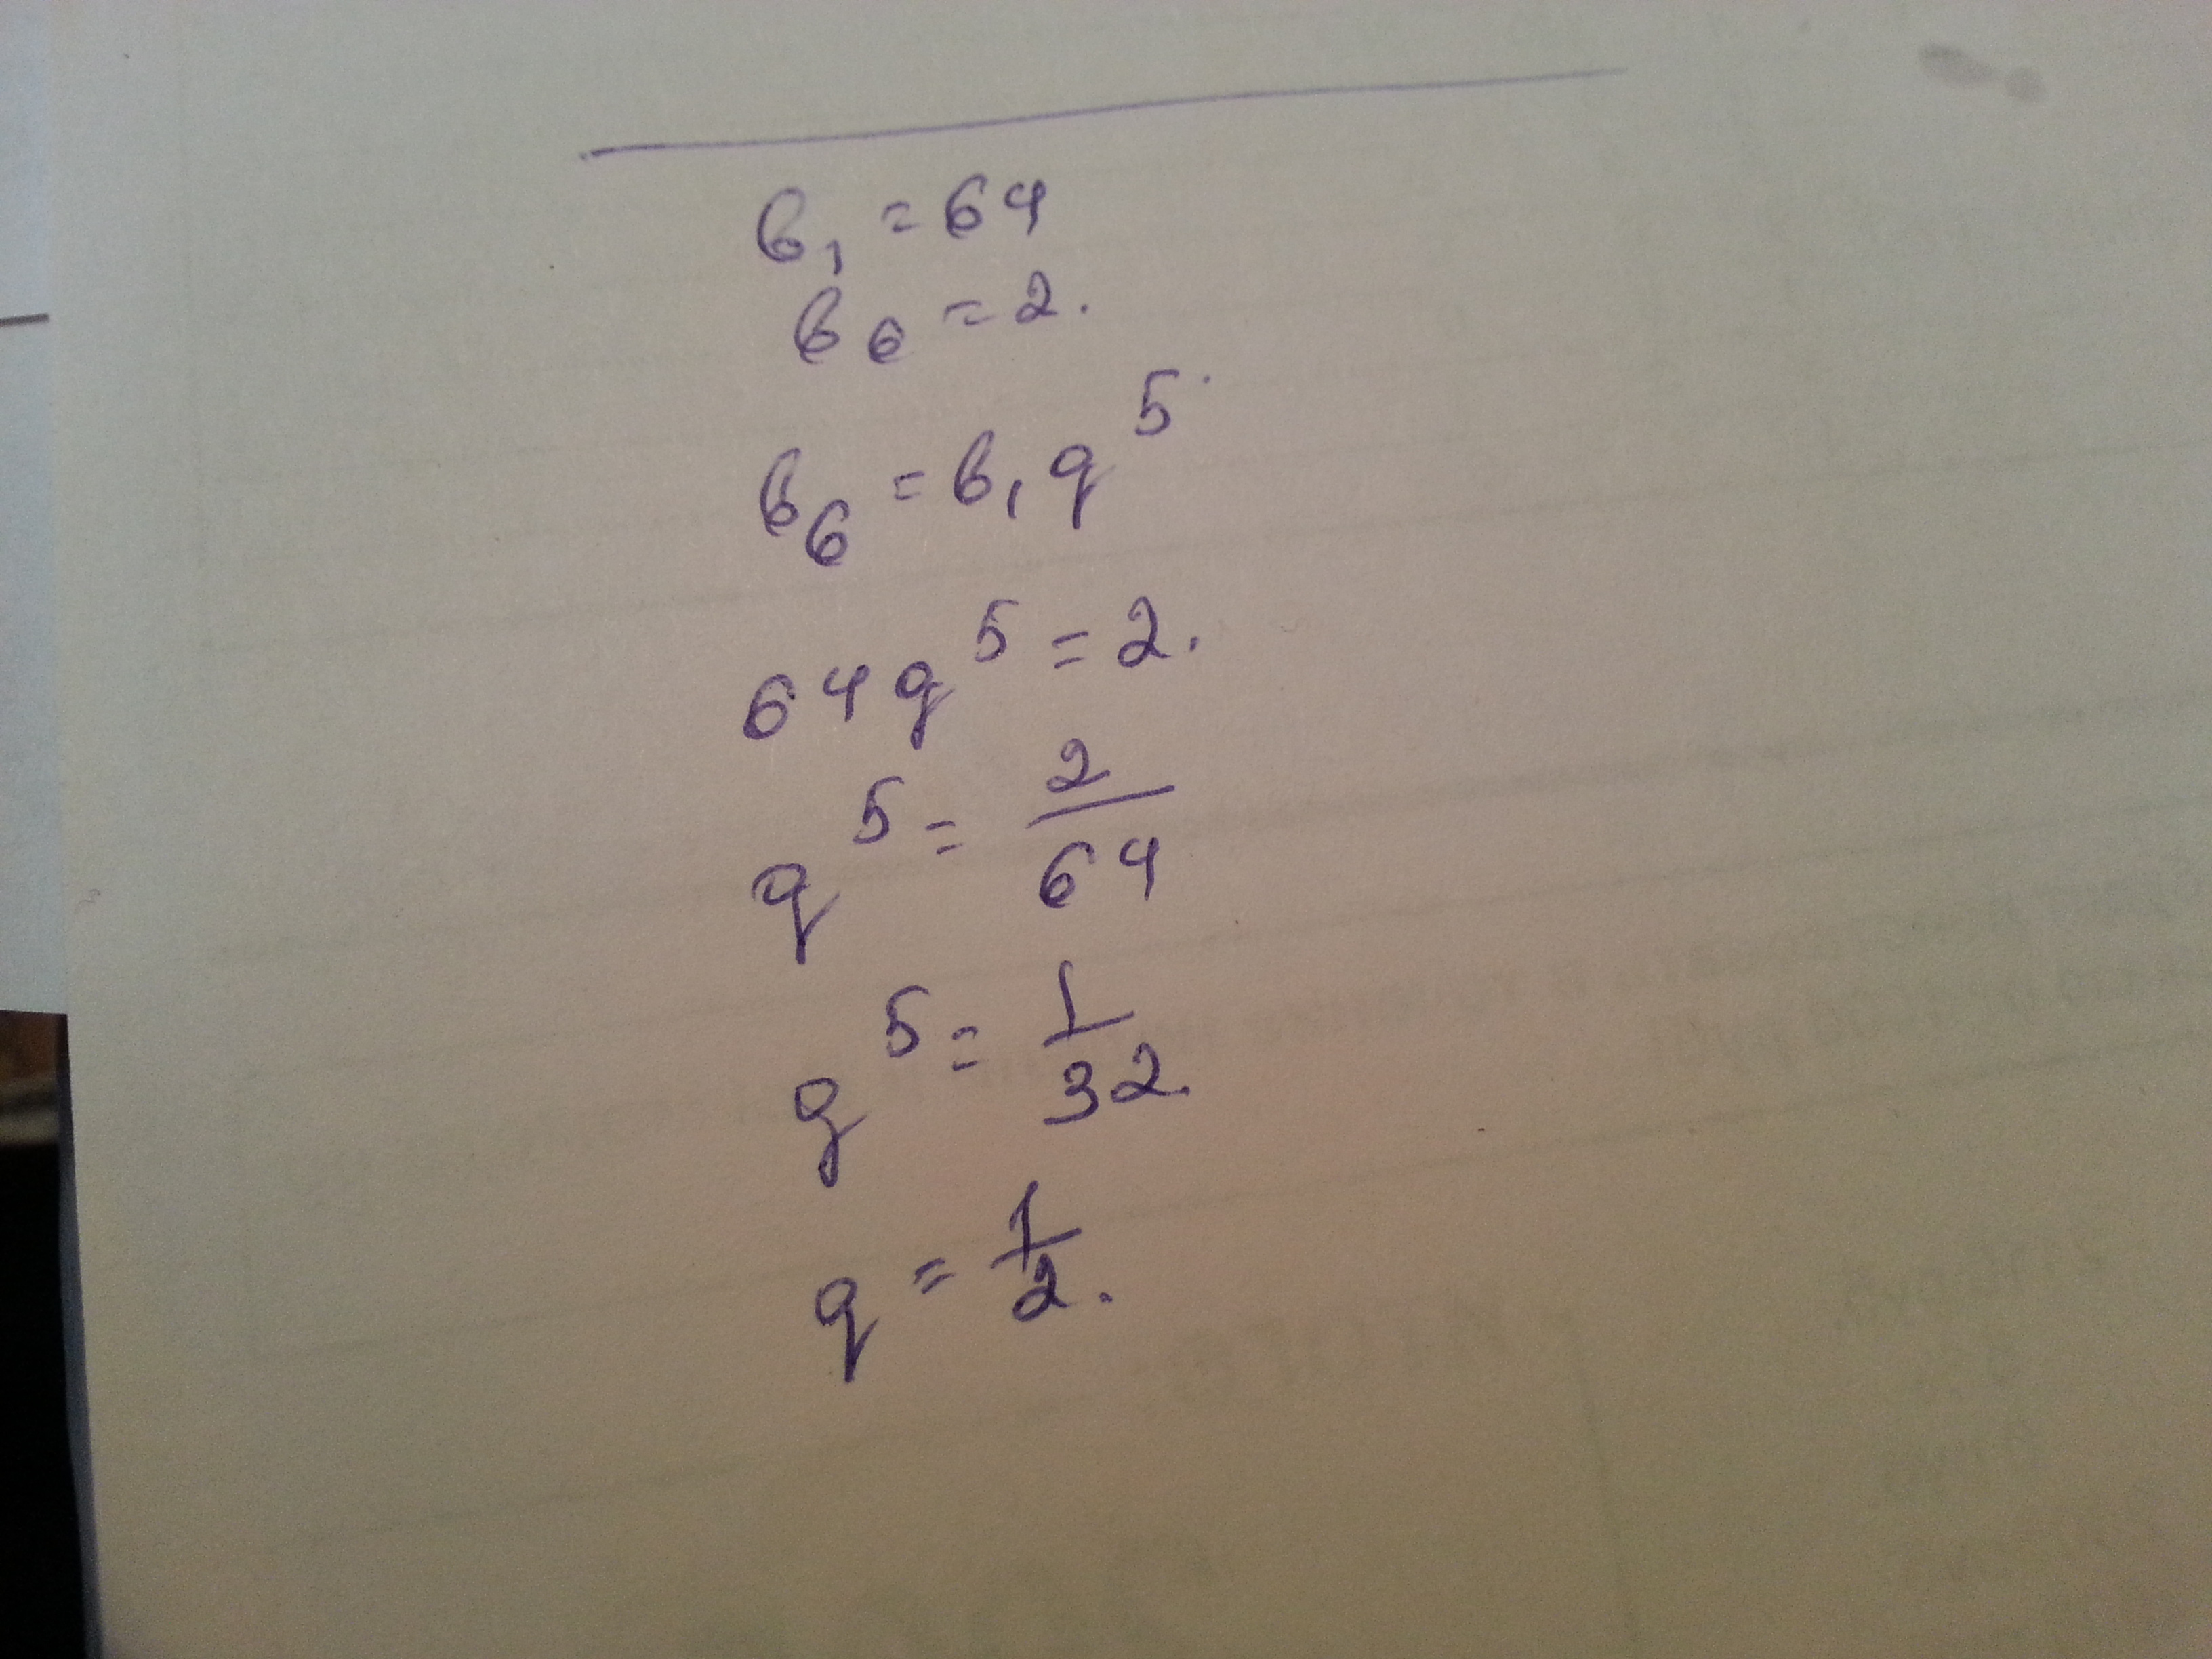 b₁ = 64
b₆ = 2.
b₆ = b₁ q⁵
64 q⁵ = 2.
q⁵ = 2/64
q⁵ = 1/32.
q = 1/2.